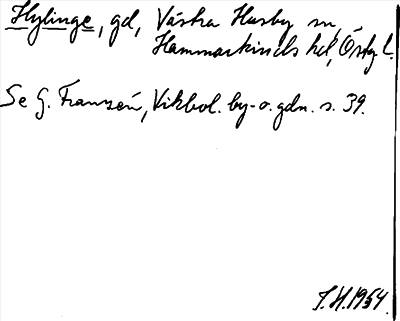 Hylinge, gd, Västra Husby sn,
Hammarkinds hd, Östg l.
Se G. Franzén, Vikbol. by- o. gdn. s. 39.
S.H. 1954.